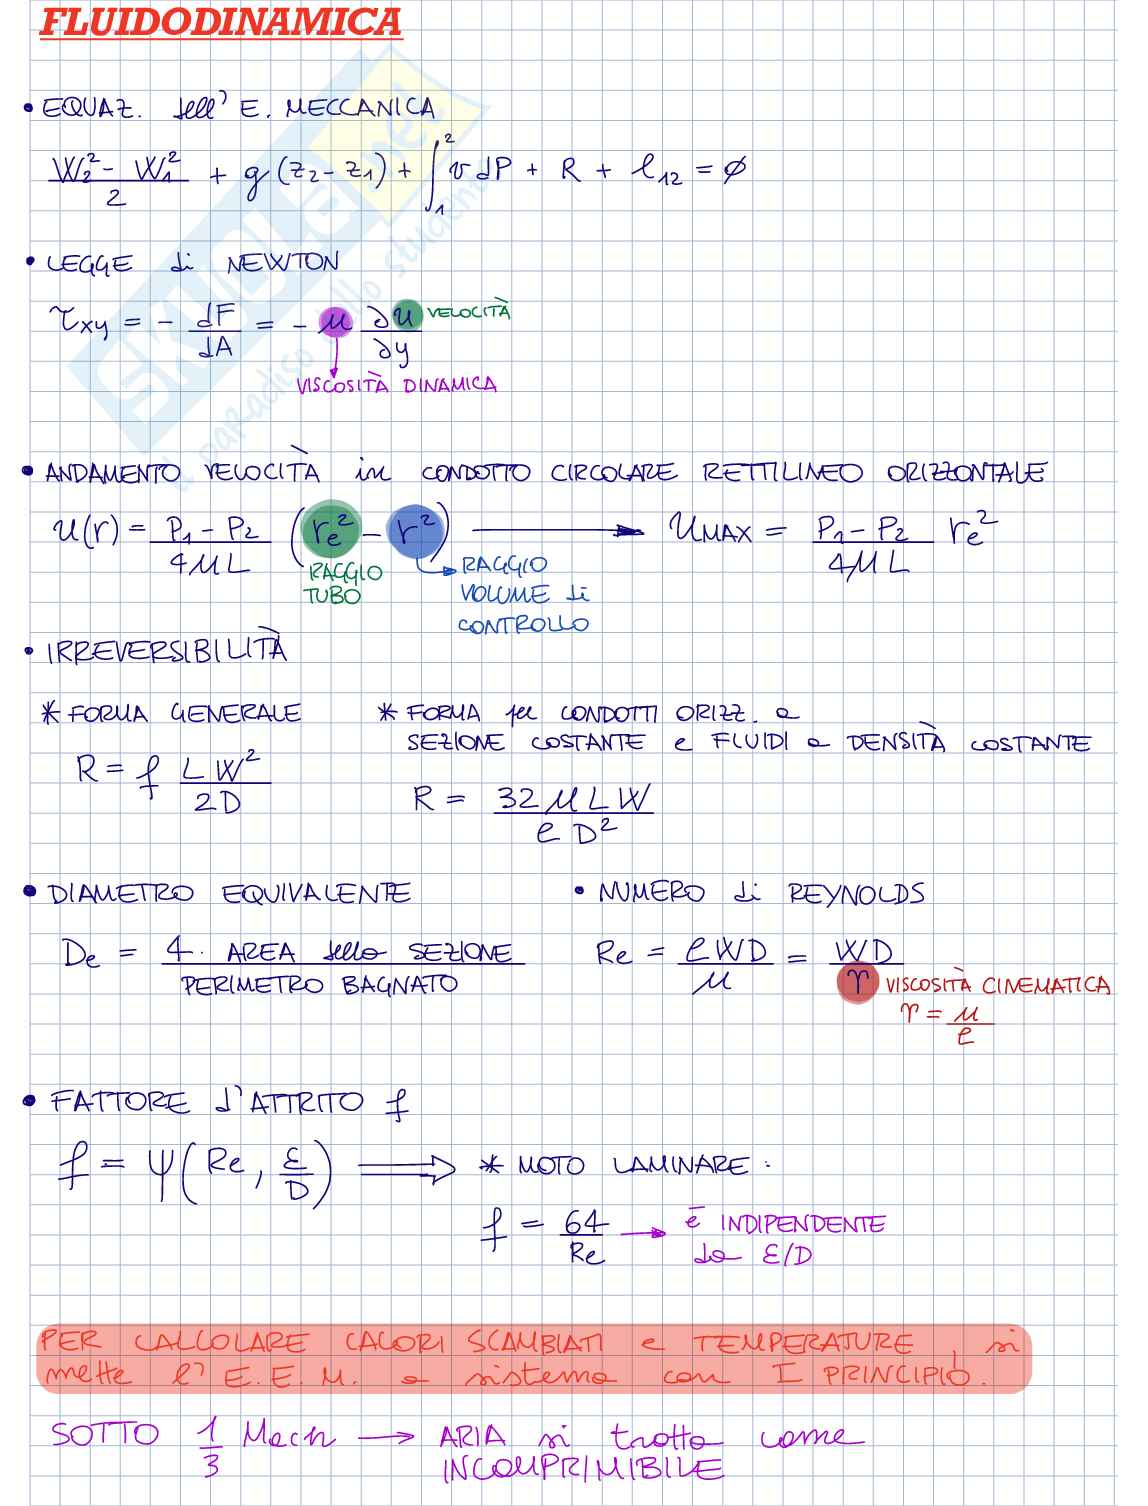 FLUIDODINAMICA
• EQUAZ. dell' E. MECCANICA
(W₂² - W₁²)/2 + g (z₂ - z₁) + ∫₁² v dP + R + l₁₂ = ∅
• LEGGE di NEWTON
τxy = - dF/dA = - μ ∂u/∂y VELOCITÀ
VISCOSITÀ DINAMICA
• ANDAMENTO VELOCITÀ in CONDOTTO CIRCOLARE RETTILINEO ORIZZONTALE
u(r) = (P₁ - P₂)/(4μL) (re² - r²) → uMAX = (P₁ - P₂)/(4μL) re²
RAGGIO TUBO
RAGGIO VOLUME di CONTROLLO
• IRREVERSIBILITÀ
* FORMA GENERALE
R = f LW²/2D
* FORMA per CONDOTTI ORIZZ. a
SEZIONE COSTANTE e FLUIDI a DENSITÀ COSTANTE
R = 32 μ L W / ρ D²
• DIAMETRO EQUIVALENTE
De = 4 · AREA della SEZIONE / PERIMETRO BAGNATO
• NUMERO di REYNOLDS
Re = ρWD/μ = WD/ν
VISCOSITÀ CINEMATICA
ν = μ/ρ
• FATTORE d'ATTRITO f
f = ψ(Re, ε/D) ⟹ * MOTO LAMINARE:
f = 64/Re → è INDIPENDENTE
da ε/D
PER CALCOLARE CALORI SCAMBIATI e TEMPERATURE, si
mette l' E.E.M. a sistema con I PRINCIPIO.
SOTTO 1/3 Mach → ARIA si tratta come
INCOMPRIMIBILE
SKUOLA.net
il paradiso dello studente